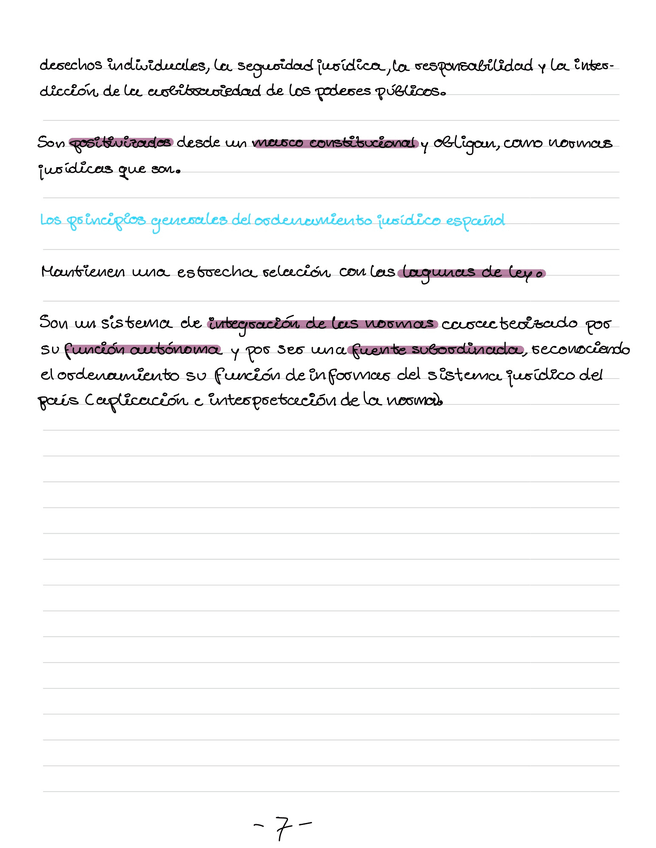 derechos individuales, la seguridad jurídica, la responsabilidad y la inter-
dicción de la arbitrariedad de los poderes públicos.
Son positivizados desde un marco constitucional y obligan, como normas
jurídicas que son.
Los principios generales del ordenamiento jurídico español
Mantienen una estrecha relación con las lagunas de ley.
Son un sistema de integración de las normas caracterizado por
su función autónoma y por ser una fuente subordinada, reconociendo
el ordenamiento su función de informar del sistema jurídico del
país (aplicación e interpretación de la norma).
- 7 -